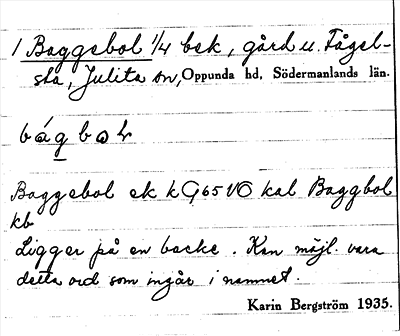 1 Baggebol 1/4 bek, gård u. Fågel-
sta, Julita sn, Oppunda hd, Södermanlands län.
Baggebol ek k G 65 VÖ kal Baggbol
kb
Ligger på en backe. Kan möjl. vara
detta ord som ingår i namnet.
Karin Bergström 1935.